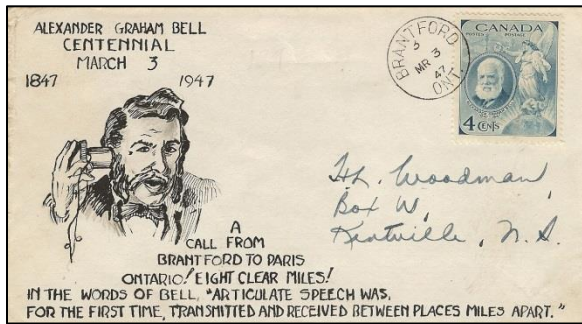 ALEXANDER GRAHAM BELL
CENTENNIAL
MARCH 3
1847 1947
BRANTFORD
3
MR 3
47
ONT.
CANADA
POSTES POSTAGE
4 CENTS
H.L. Woodman,
Box W,
Kentville, N.S.
A
CALL FROM
BRANTFORD TO PARIS
ONTARIO! EIGHT CLEAR MILES!
IN THE WORDS OF BELL, "ARTICULATE SPEECH WAS,
FOR THE FIRST TIME, TRANSMITTED AND RECEIVED BETWEEN PLACES MILES APART."